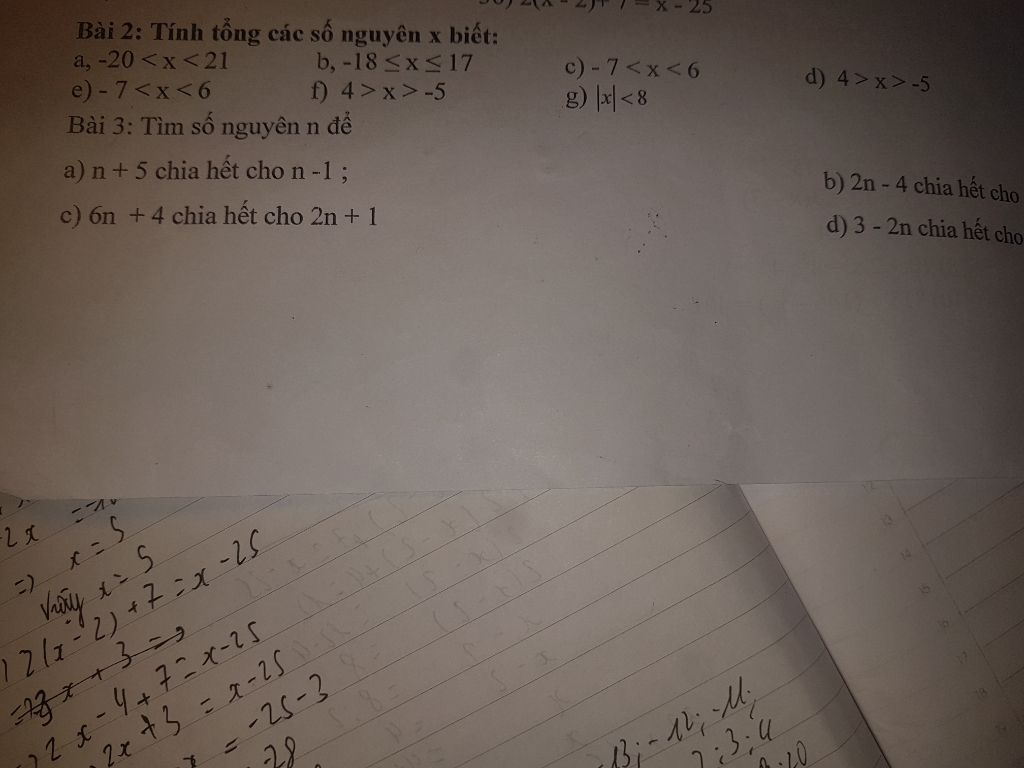 2(x - 2)+ 7 = x - 25
Bài 2: Tính tổng các số nguyên x biết:
a, -20 < x < 21 b, -18 ≤ x ≤ 17 c) - 7 < x < 6 d) 4 > x > -5
e) - 7 < x < 6 f) 4 > x > -5 g) |x| < 8
Bài 3: Tìm số nguyên n để
a) n + 5 chia hết cho n -1 ; b) 2n - 4 chia hết cho
c) 6n + 4 chia hết cho 2n + 1 d) 3 - 2n chia hết cho
-2x
=> x = 5
Vậy x = 5
) 2(x - 2) + 7 = x - 25
2x - 4 + 7 = x - 25
2x + 3 = x - 25
= -25 - 3
-28
-13; -12; -11;
2; 3; 4